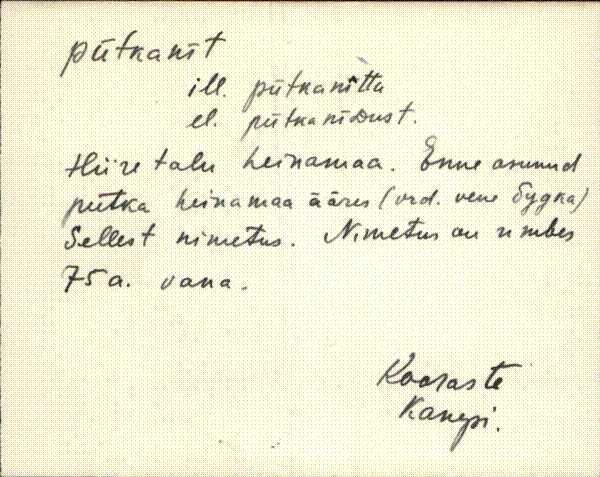 pütkanit́
ill. pütkanitta
el. pütkanidust.
Hiire talu heinamaa. Enne asunud
putka heinamaa ääres (vrd. vene будка)
Sellest nimetus. Nimetus on umbes
75 a. vana.
Kooraste
Kanepi.